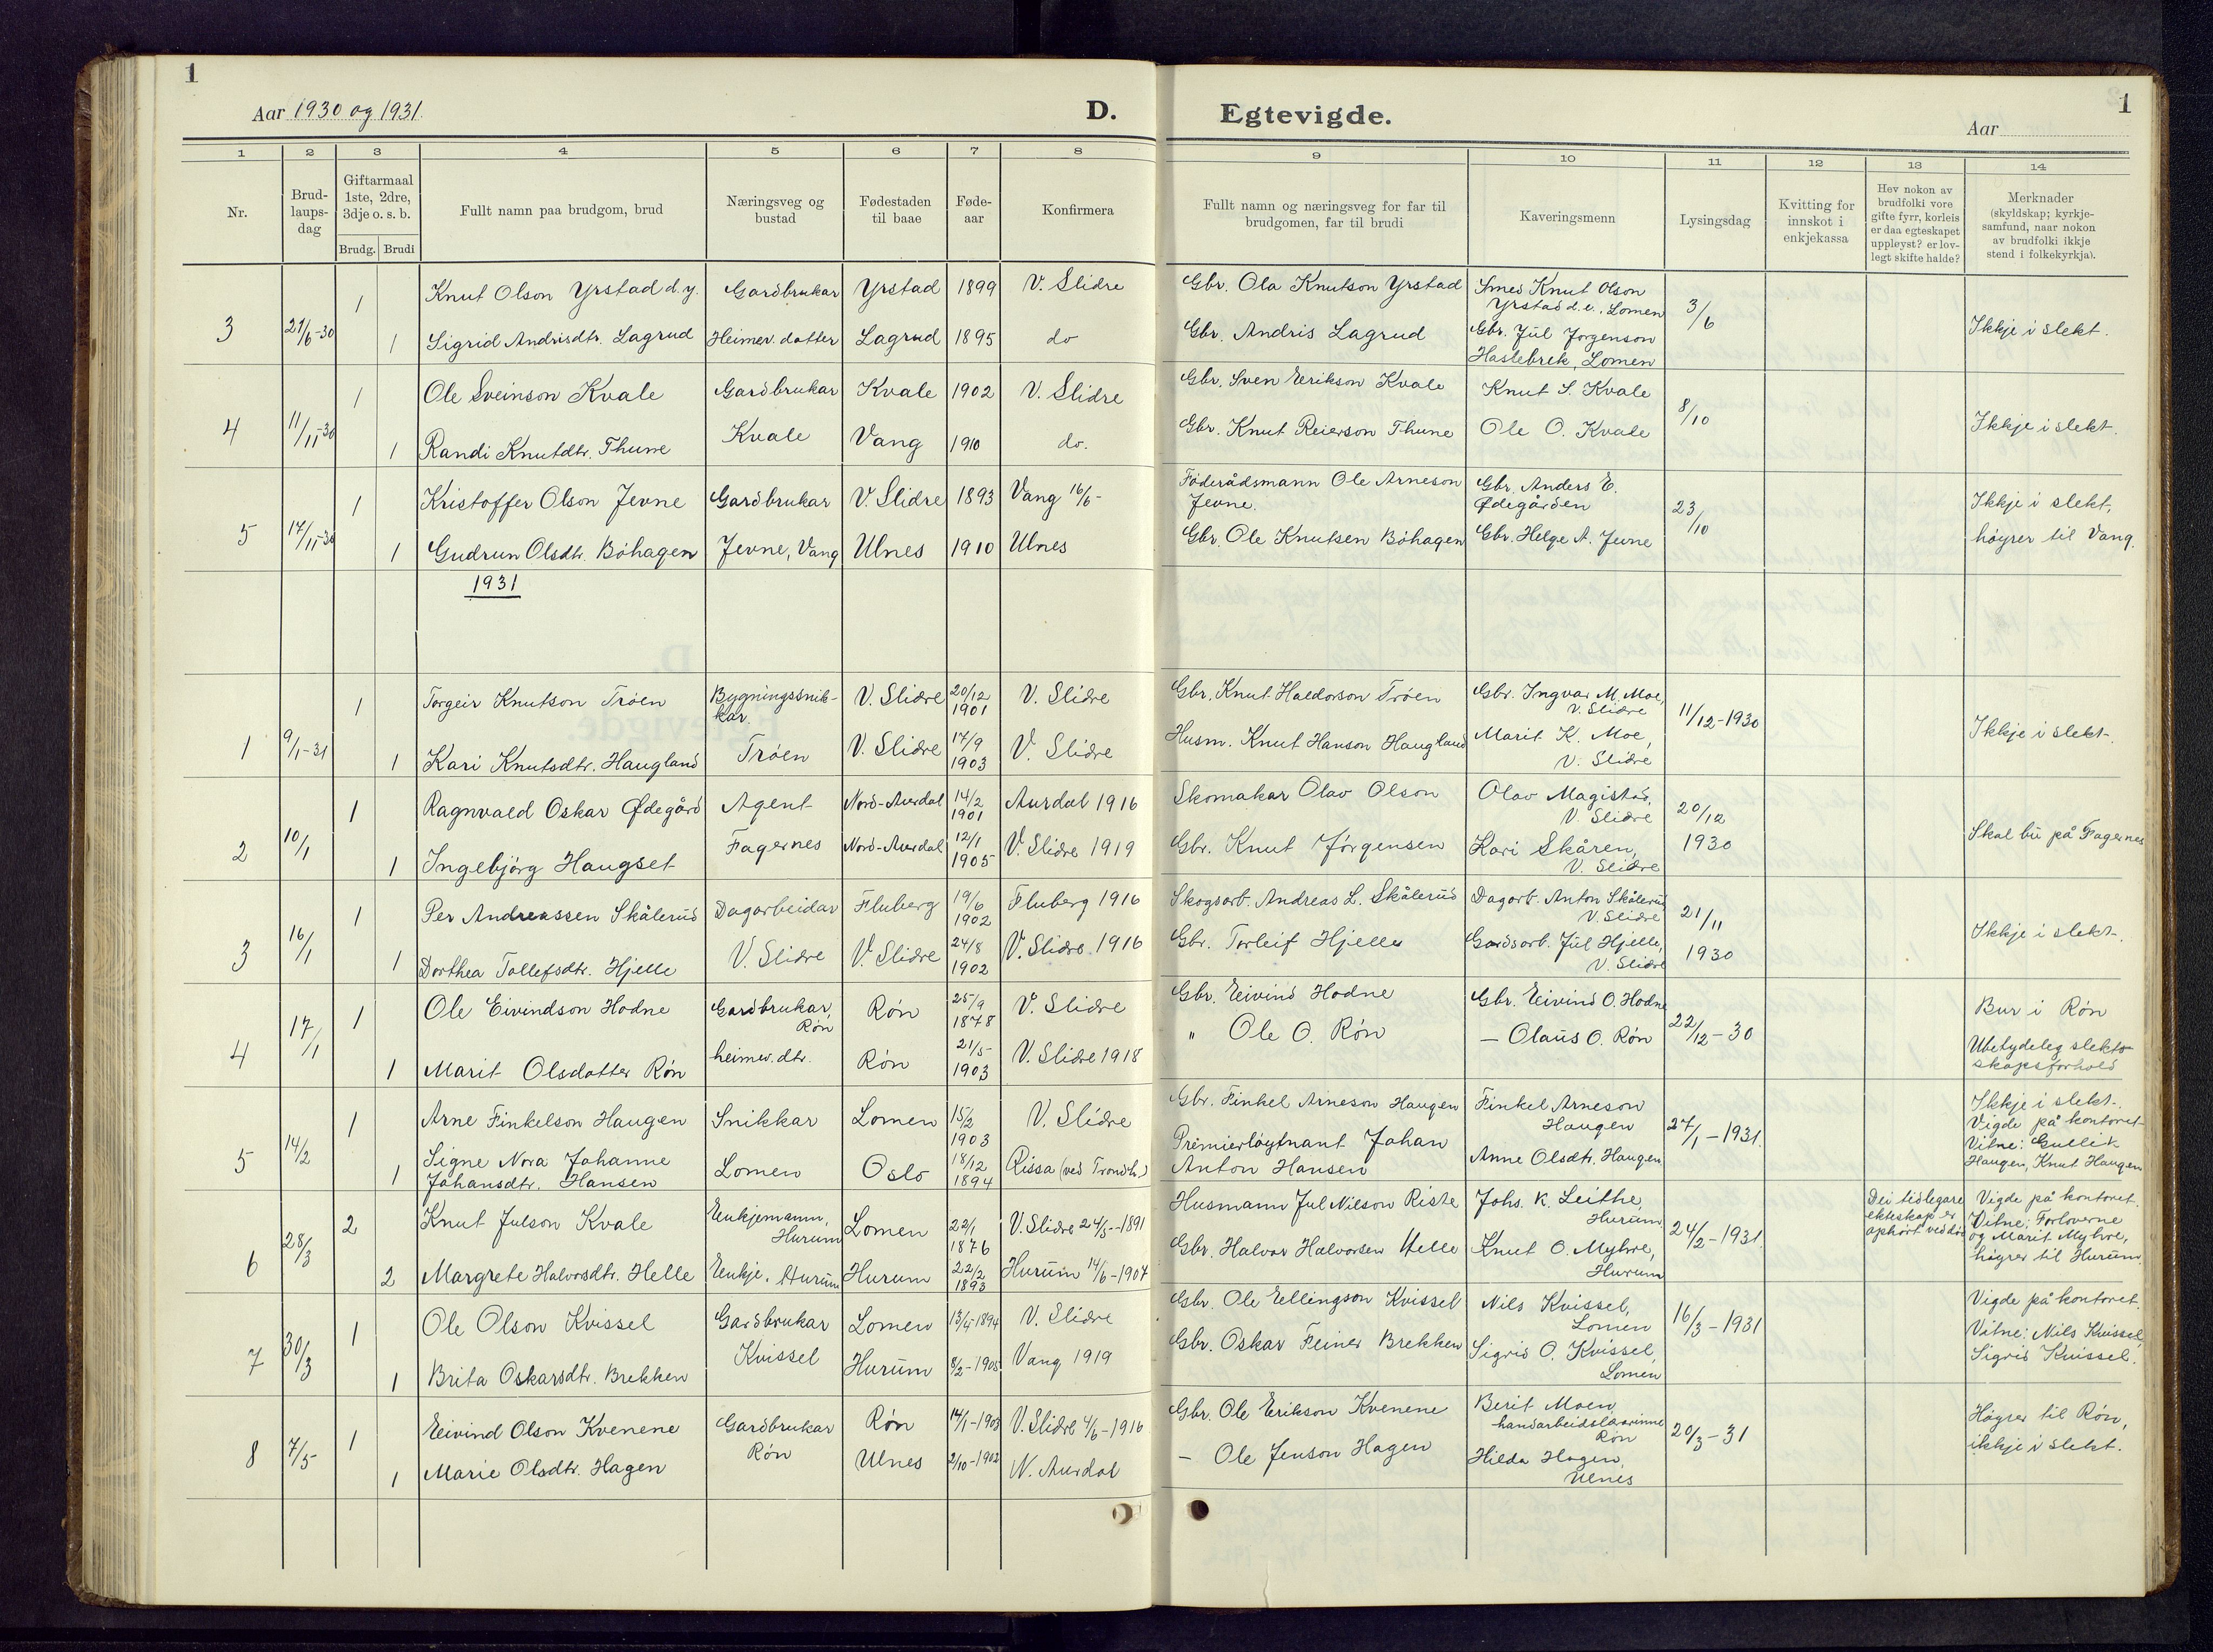 1
Aar 1930 og 1931.
D.
Egtevigde.
1
Aar
1 2 3 4 5 6 7 8 9 10 11 12 13 14
Nr.
Brud-
laups-
dag
Giftarmaal
1ste, 2dre,
3dje o. s. b.
Brudg. Brudi
Fullt namn paa brudgom, brud
Næringsveg og
bustad
Fødestaden
til baae
Føde-
aar
Konfirmera
Fullt namn og næringsveg for far til
brudgomen, far til brudi
Kaveringsmenn
Lysingsdag
Kvitting for
innskot i
enkjekassa
Hev nokon av
brudfolki vore
gifte fyrr, korleis
er daa egteskapet
uppløyst? er lov-
legt skifte halde?
Merknader
(skyldskap; kyrkje-
samfund, naar nokon
av brudfolki ikkje
stend i folkekyrkja).
3 21/6-30
1 Knut Olson Yrstad d.y. Gardbrukar Yrstad 1899 V. Slidre
1 Sigrid Andrisdtr. Lagrud Heimev. datter Lagrud 1895 do
Gbr. Ola Knutson Yrstad
Gbr. Andris Lagrud
Smed Knut Olson
Yrstad d.e., Lomen
Gbr. Jul Jørgenson
Haslebrek, Lomen
3/6
Ikkje i slekt.
4 11/11-30
1 Ole Sveinson Kvale Gardbrukar Kvale 1902 V. Slidre
1 Randi Knutdtr. Thune Kvale Vang 1910 do.
Gbr. Sven Erikson Kvale
Gbr. Knut Reierson Thune
Knut S. Kvale
Ole O. Kvale
8/10
Ikkje i slekt.
5 17/11-30
1 Kristoffer Olson Jevne Gardbrukar V. Slidre 1893 Vang 16/6-
1 Gudrun Olsdtr. Bøhagen Jevne, Vang Ulnes 1910 Ulnes
Føderådsmann Ole Arneson
Jevne.
Gbr. Ole Knutsen Bøhagen
Gbr. Anders E.
Ødegården
Gbr. Helge A. Jevne
23/10
Ikkje i slekt,
høyrer til Vang.
1931
1 9/1-31
1 Torgeir Knutson Trøen Bygningssnik-
kar. V. Slidre 20/12
1901 V. Slidre
1 Kari Knutsdtr. Haugland Trøen V. Slidre 17/9
1903 V. Slidre
Gbr. Knut Haldorson Trøen
Husm. Knut Hanson Haugland
Gbr. Ingvar M. Moe,
V. Slidre
Marit K. Moe,
V. Slidre
11/12-1930
Ikkje i slekt.
2 10/1
1 Ragnvald Oskar Ødegård Agent Nord-Aurdal 14/2
1901 Aurdal 1916
1 Ingebjørg Haugset Fagernes Nord-Aurdal 12/1
1905 V. Slidre 1919
Skomakar Olav Olson
Gbr. Knut Jørgensen
Olav Magistad,
V. Slidre
Kari Skåren,
V. Slidre
20/12
1930
Skal bu på Fagernes
3 16/1
1 Per Andreassen Skålerud Dagarbeidar Fluberg 19/6
1902 Fluberg 1916
1 Dorthea Tollefsdtr. Hjelle V. Slidre V. Slidre 24/8
1902 V. Slidre 1916
Skogsarb. Andreas L. Skålerud
Gbr. Torleif Hjelle
Dagarb. Anton Skålerud
V. Slidre
Gardsarb. Jul Hjelle,
V. Slidre
21/11
1930
Ikkje i slekt.
4 17/1
1 Ole Eivindson Hodne Gardbrukar,
Røn Røn 25/9
1878 V. Slidre
1 Marit Olsdatter Røn heimev. dtr. Røn 21/5-
1903 V. Slidre 1918
Gbr. Eivind Hodne
" Ole O. Røn
Gbr. Eivind O. Hodne
- Olaus O. Røn
22/12-30
Bur i Røn
Ubetydeleg slekts-
skapsforhold
5 14/2
1 Arne Finkelson Haugen Snikkar Lomen 15/2
1903 V. Slidre
1 Signe Nora Johanne
Johansdtr. Hansen Lomen Oslo 18/12
1894 Rissa (ved Trondh.)
Gbr. Finkel Arneson Haugen
Premierløytnant Johan
Anton Hansen
Finkel Arneson
Haugen
Anne Olsdtr. Haugen
27/1-1931.
Ikkje i slekt.
Vigde på kontoret
Vitne: Gullik
Haugen, Knut Haugen
6 28/3
2 Knut Julson Kvale Enkjemann,
Hurum Lomen 22/1
1876 V. Slidre 24/5-1891
2 Margrete Halvorsdtr. Helle Enkje, Hurum Hurum 22/2
1893 Hurum 14/6-1907
Husmann Jul Nilson Riste
Gbr. Halvor Halvorsen Helle
Johs. K. Leithe,
Hurum
Knut O. Myhre,
Hurum
24/2-1931.
Dei tidlegare
ekteskap er
ophørt ved død
Vigde på kontoret.
Vitne: Forloverne
og Marit Myhre,
høyrer til Hurum.
7 30/3
1 Ole Olson Kvissel Gardbrukar Lomen 13/4-1894 V. Slidre
1 Brita Oskarsdtr. Brekken Kvissel Hurum 8/2-1905 Vang 1919
Gbr. Ole Ellingson Kvissel
Gbr. Oskar Feiner Brekken
Nils Kvissel,
Lomen
Sigrid O. Kvissel,
Lomen
16/3-1931
Vigde på kontoret.
Vitne: Nils Kvissel,
Sigrid Kvissel.
8 7/5
1 Eivind Olson Kvenene Gardbrukar Røn 14/1-1903 V. Slidre 4/6-1916
1 Marie Olsdtr. Hagen Røn Ulnes 2/10-1902 N. Aurdal
Gbr. Ole Erikson Kvenene
- Ole Jenson Hagen
Berit Moen,
handarbeidslærarinne
Røn
Hilda Hagen,
Ulnes
20/3-31
Høyrer til Røn,
ikkje i slekt.